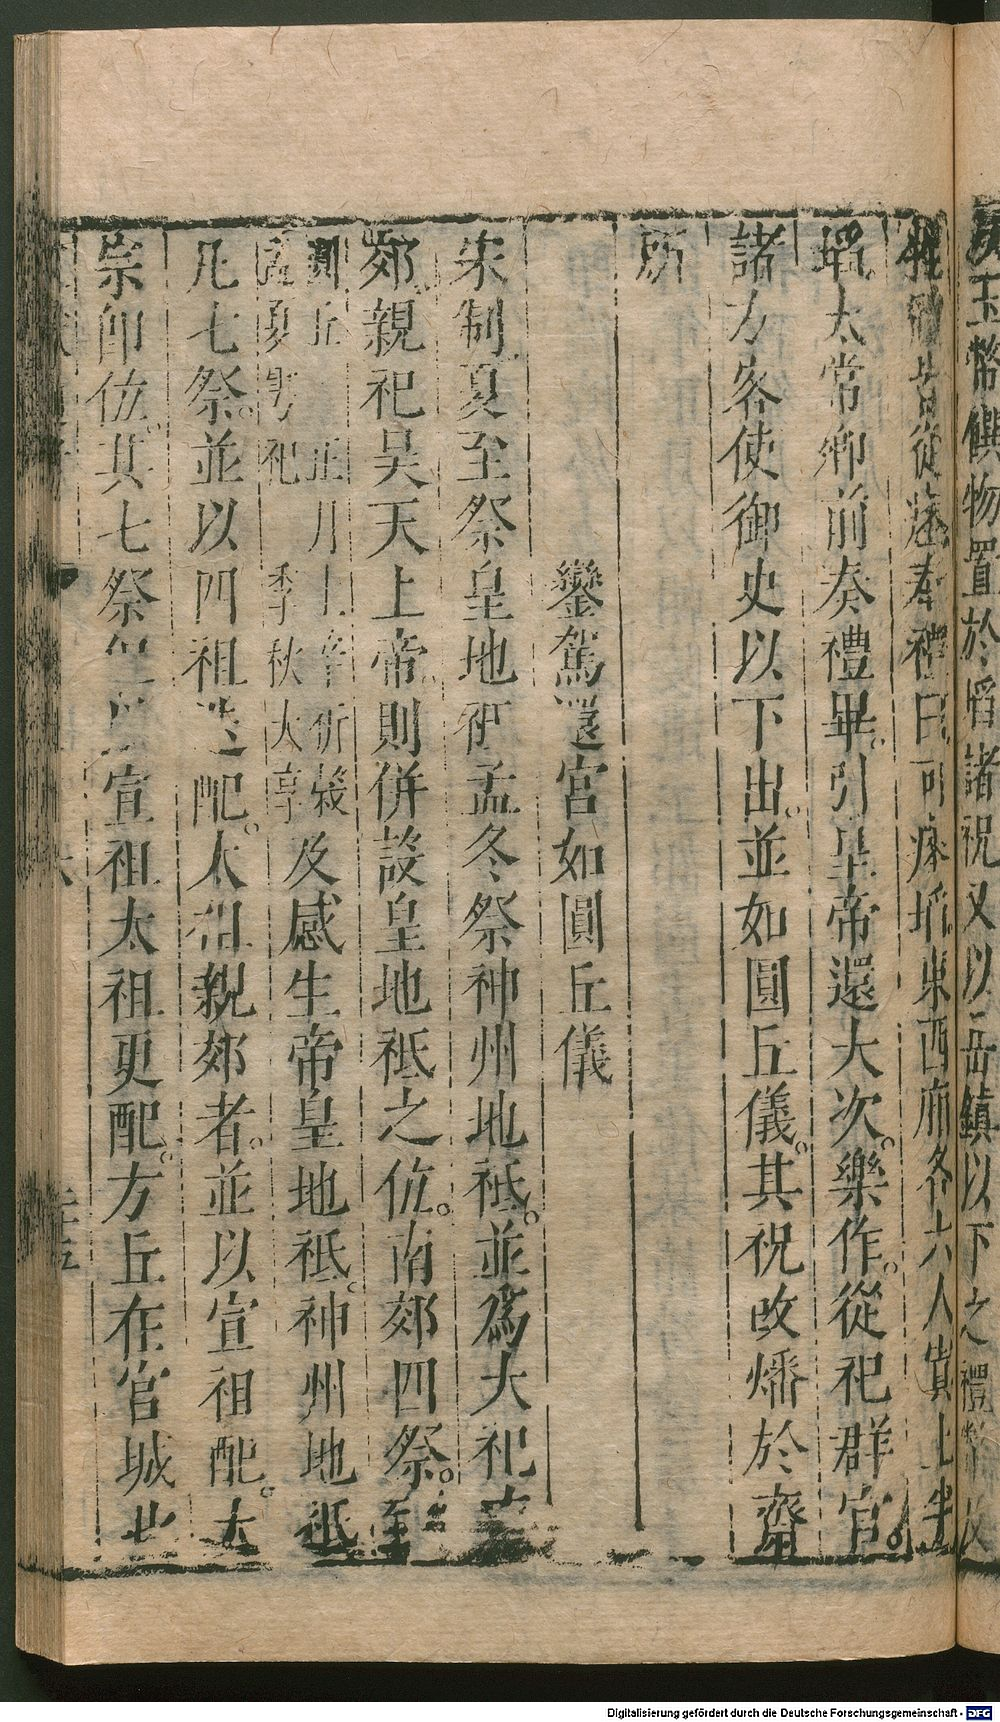 玉幣饌物置於埳諸祝又以岳鎮以下之禮幣
皆從瘞奉禮曰可瘞埳東西廂各六人窴土半
埳太常卿前奏禮畢引皇帝還大次樂作從祀群官
諸方客使御史以下出並如圓丘儀其祝改燔於齋
所
鑾駕還宮如圓丘儀
宋制夏至祭皇地祇孟冬祭神州地祗並為大祀
郊親祀昊天上帝則併設皇地祗之位南郊四祭至
圜丘 正月上辛祈穀
孟夏雩祀 季秋大享
及感生帝皇地祗神州地祗
凡七祭並以四祖迭配太祖親郊者並以宣祖配太
宗即位其七祭宣祖太祖更配方丘在宮城北